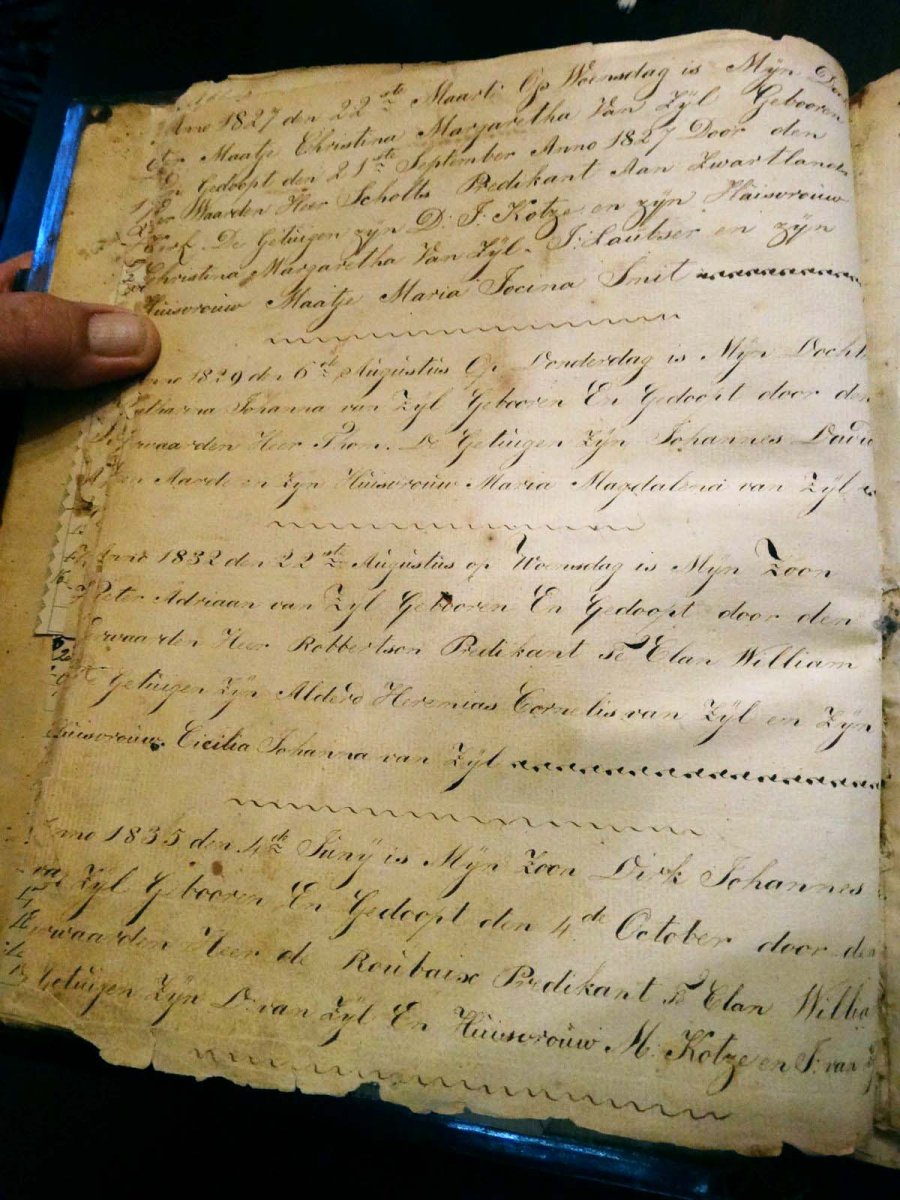 Anno 1827 den 22ste Maart Op Woensdag is Mÿn
Maatje Christina Margaretha Van Zÿl Gebooren
Gedoopt den 21ste September Anno 1827 Door den
Waarden Heer Scholts Predikant Aan Zwartlands
Kerk De Getuigen zÿn D: J: Kotze en zÿn Huisvrouw
Christina Margaretha Van Zÿl. J: Laubser en zÿn
Huisvrouw Maatje Maria Jocina Smit
Anno 1829 den 6de Augustus Op Donderdag is Mÿn Docht
Johanna van Zÿl Gebooren En Gedoopt door den
Eerwaarden Heer Thom. De Getuigen Zÿn Johannes
Aarde en Zÿn Huisvrouw Maria Magdalena van Zÿl
Anno 1832 den 22ste Augustus op Woensdag is Mÿn Zoon
Pieter Adriaan van Zÿl Gebooren En Gedoopt door den
Eerwaarden Heer Robbertson Predikant Te Clan William
De Getuigen Zÿn Aldero Heremias Cornelis van Zÿl en Zÿn
Huisvrouw. Cicilia Johanna van Zÿl
Anno 1835 den 4de Junÿ is Mÿn Zoon Dirk Johannes
van Zÿl Gebooren En Gedoopt den 4de October door den
Eerwaarden Heer de Roubaix Predikant Te Clan Willia
Getuigen Zÿn D: van Zÿl En Huisvrouw M: Kotze en J: van